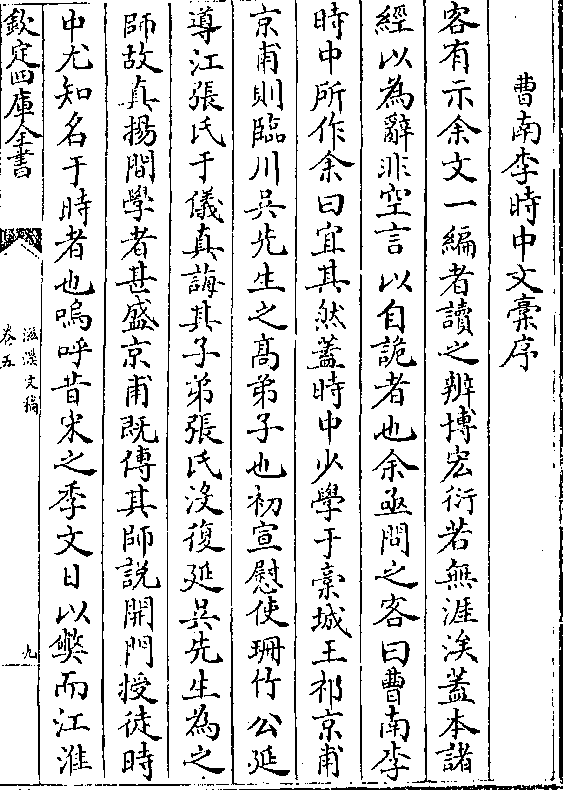 曹南李時中文稾序
客有示余文一編者讀之辨博宏衍若無涯涘蓋本諸
經以為辭非空言以自詭者也余亟問之客曰曹南李
時中所作余曰宜其然蓋時中少學于藁城王祁京甫
京甫則臨川吳先生之髙弟子也初宣慰使珊竹公延
導江張氏于儀真誨其子弟張氏沒復延吳先生為之
師故真揚間學者甚盛京甫既傳其師說開門授徒時
中尤知名于時者也嗚呼昔宋之季文日以弊而江淮
欽定四庫全書
滋溪文稿
卷五
九